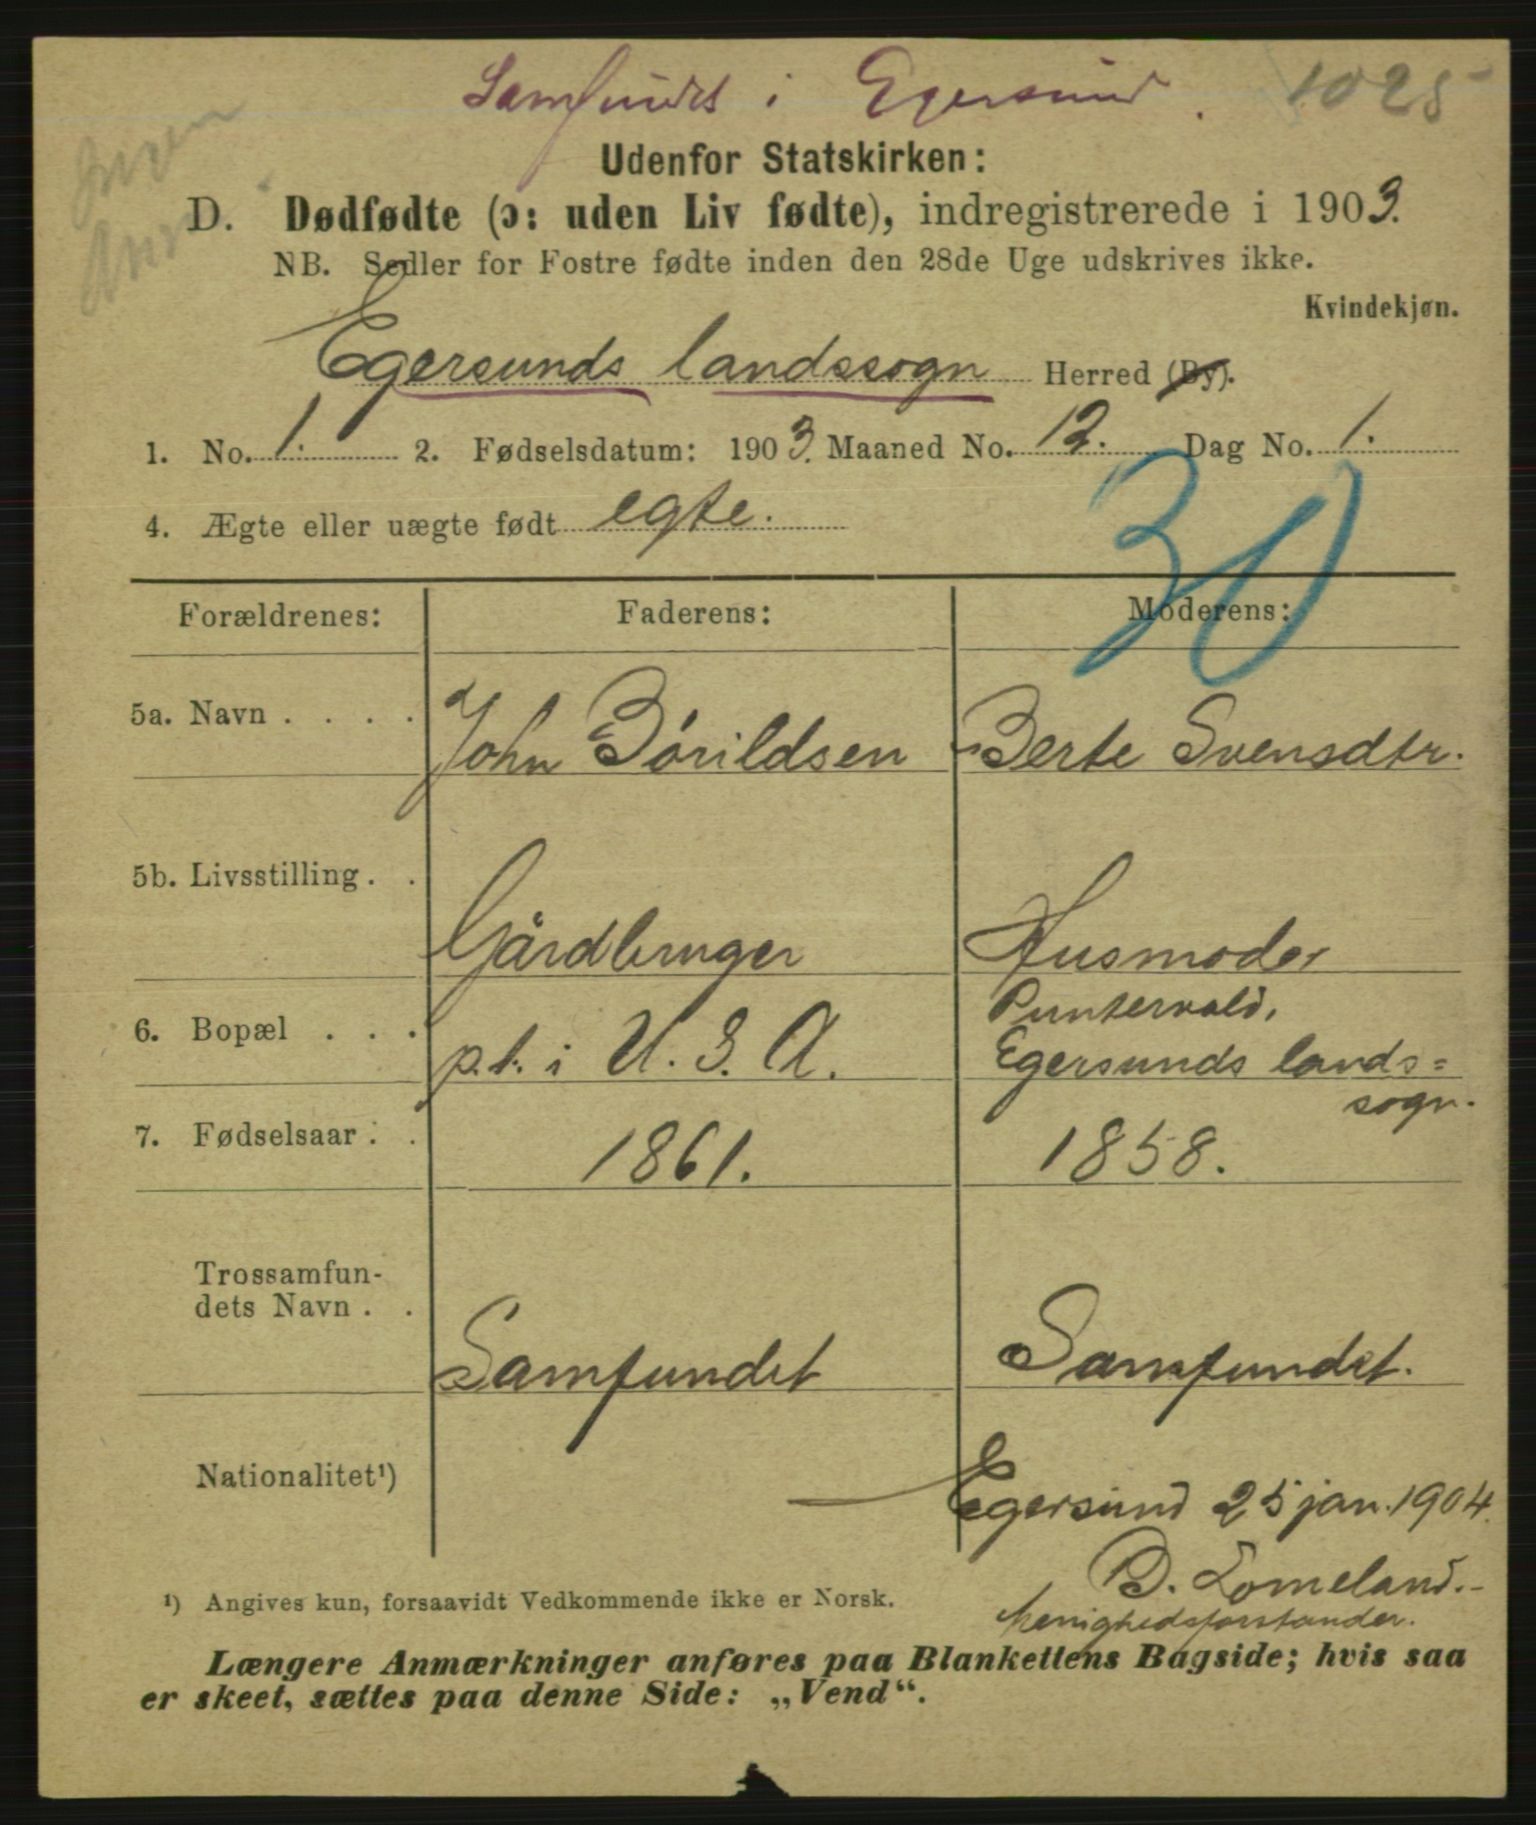 Samfundet i Egersund. 1025
Ingen
Anm.
Udenfor Statskirken:
D. Dødfødte (ɔ: uden Liv fødte), indregistrerede i 1903.
NB. Sedler for Fostre fødte inden den 28de Uge udskrives ikke.
Kvindekjøn.
Egersunds landssogn Herred (By).
1. No. 1. 2. Fødselsdatum: 1903. Maaned No. 12. Dag No. 1.
4. Ægte eller uægte født egte.
30
Forældrenes: Faderens: Moderens:
5a. Navn . . . . John Bórildsen Berte Svensdtr.
5b. Livsstilling . . Gårdbruger Husmoder
6. Bopæl . . . p.t. i U. S. A. Puntervold, Egersunds lands=
sogn.
7. Fødselsaar . . 1861. 1858.
Trossamfun-
dets Navn . . Samfundet Samfundet.
Nationalitet¹)
Egersund 25 jan. 1904.
B. Lomeland.
Menighedsforstander.
¹) Angives kun, forsaavidt Vedkommende ikke er Norsk.
Længere Anmærkninger anføres paa Blankettens Bagside; hvis saa
er skeet, sættes paa denne Side: „Vend“.